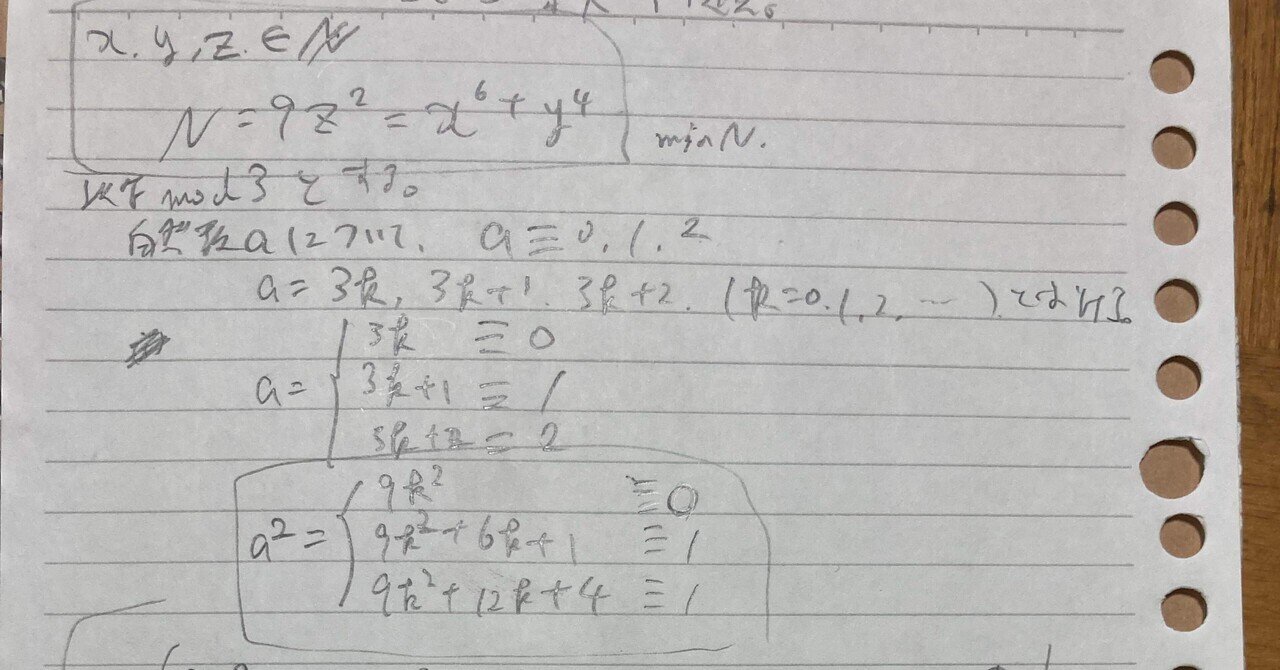 x, y, z ∈ N
N = 9z² = x⁶ + y⁴
min N.
以下 mod 3 とする。
自然数 a について、 a ≡ 0, 1, 2
a = 3k, 3k+1, 3k+2. (k=0, 1, 2, … )
a = { 3k ≡ 0
3k+1 ≡ 1
3k+2 = 2
a² = { 9k² ≡ 0
9k² + 6k + 1 ≡ 1
9k² + 12k + 4 ≡ 1